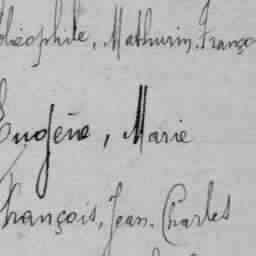 Théophile, Mathurin, Franço
Eugène, Marie
François, Jean, Charles